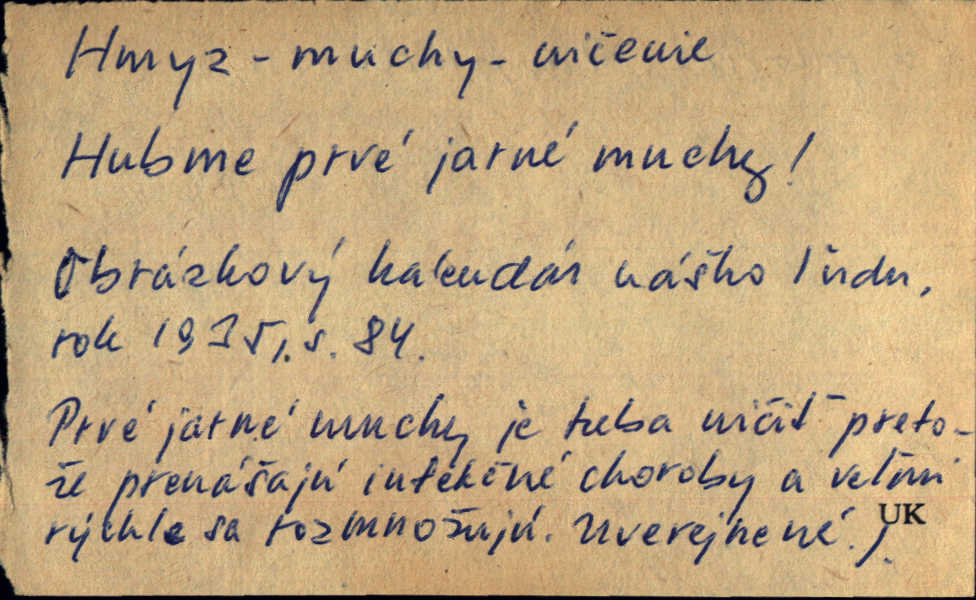 Hmyz - muchy - ničenie
Hubme prvé jarné muchy!
Obrázkový kalendár nášho ľudu,
rok 1935, s. 84.
Prvé jarné muchy je treba ničiť preto-
že prenášajú infekčné choroby a veľmi
rýchle sa rozmnožujú. Uverejnené.).
UK